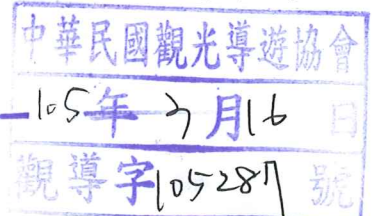 中華民國觀光導遊協會
105年3月16日
觀導字105287號